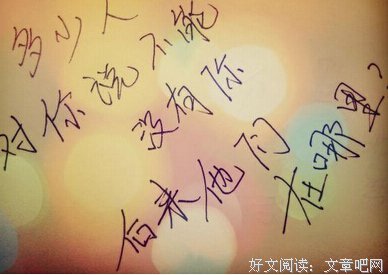 多少人
对你说不能
没有你
后来他们
在哪里?
好文阅读:文章吧网